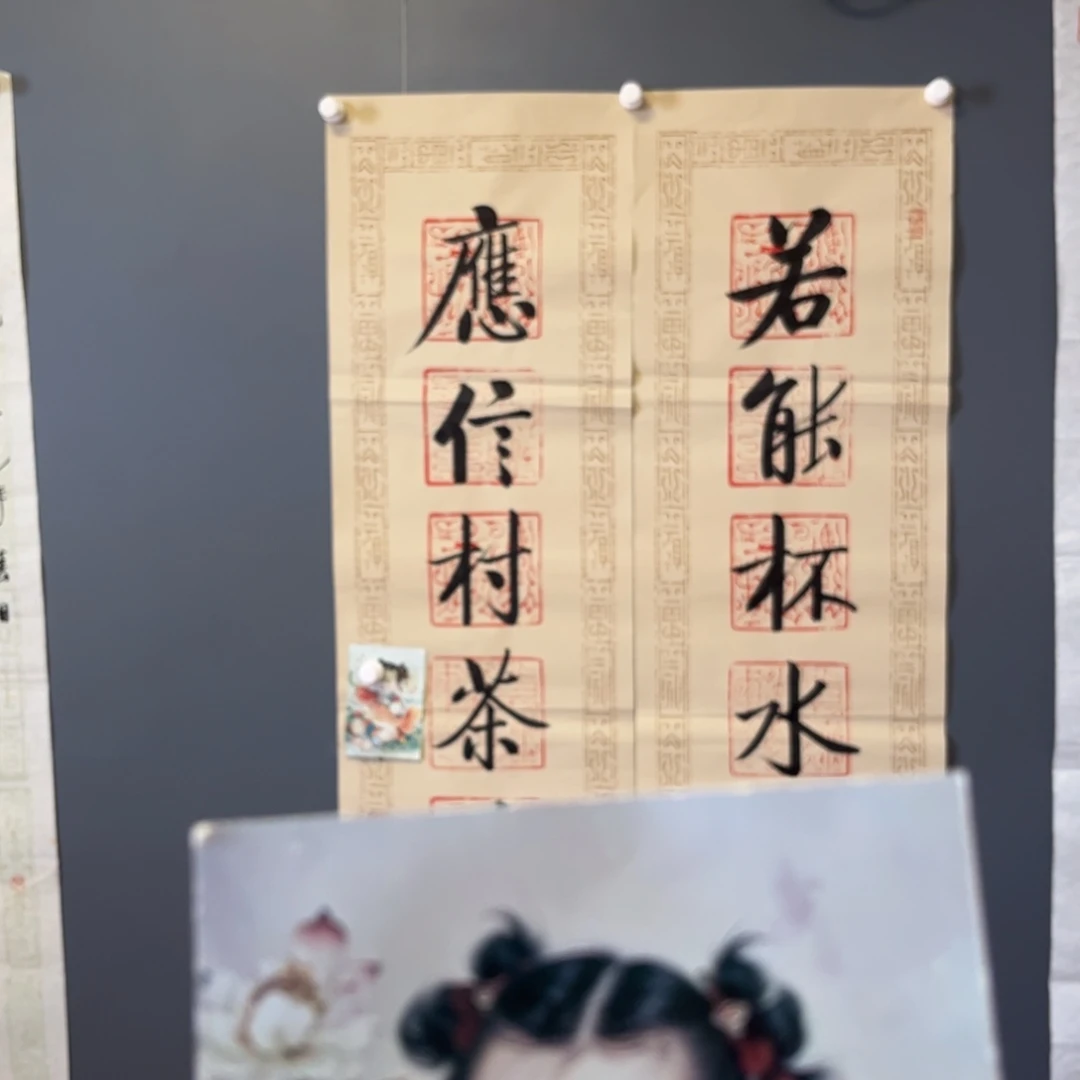 若能杯水
應信村茶